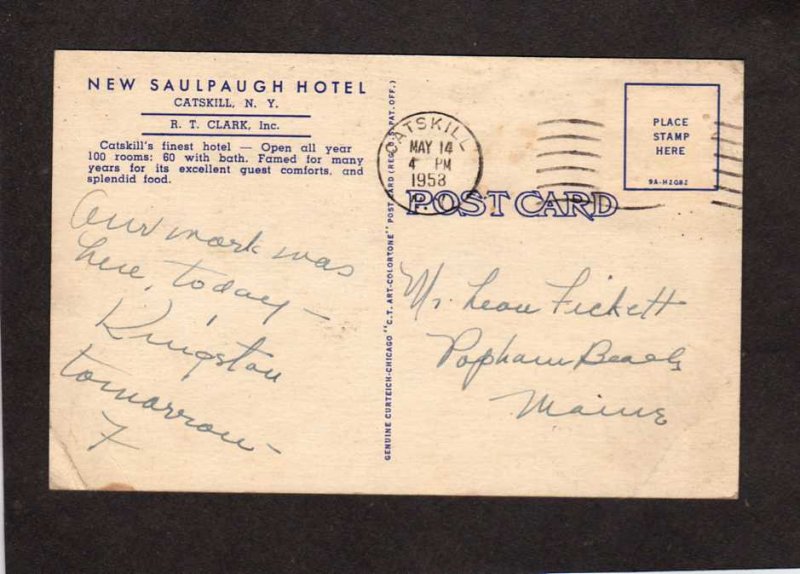 NEW SAULPAUGH HOTEL
CATSKILL, N. Y.
R. T. CLARK, Inc.
Catskill's finest hotel — Open all year
100 rooms: 60 with bath. Famed for many
years for its excellent guest comforts, and
splendid food.
Our work was
here, today —
Kingston
tomorrow —
F
GENUINE CURTEICH-CHICAGO "C.T. ART-COLORTONE" POST CARD (REG. U.S. PAT. OFF.)
CATSKILL
MAY 14
4 PM
1953
N.Y.
PLACE
STAMP
HERE
9A-H2082
POST CARD
Mr. Leon Fickett
Popham Beach
Maine